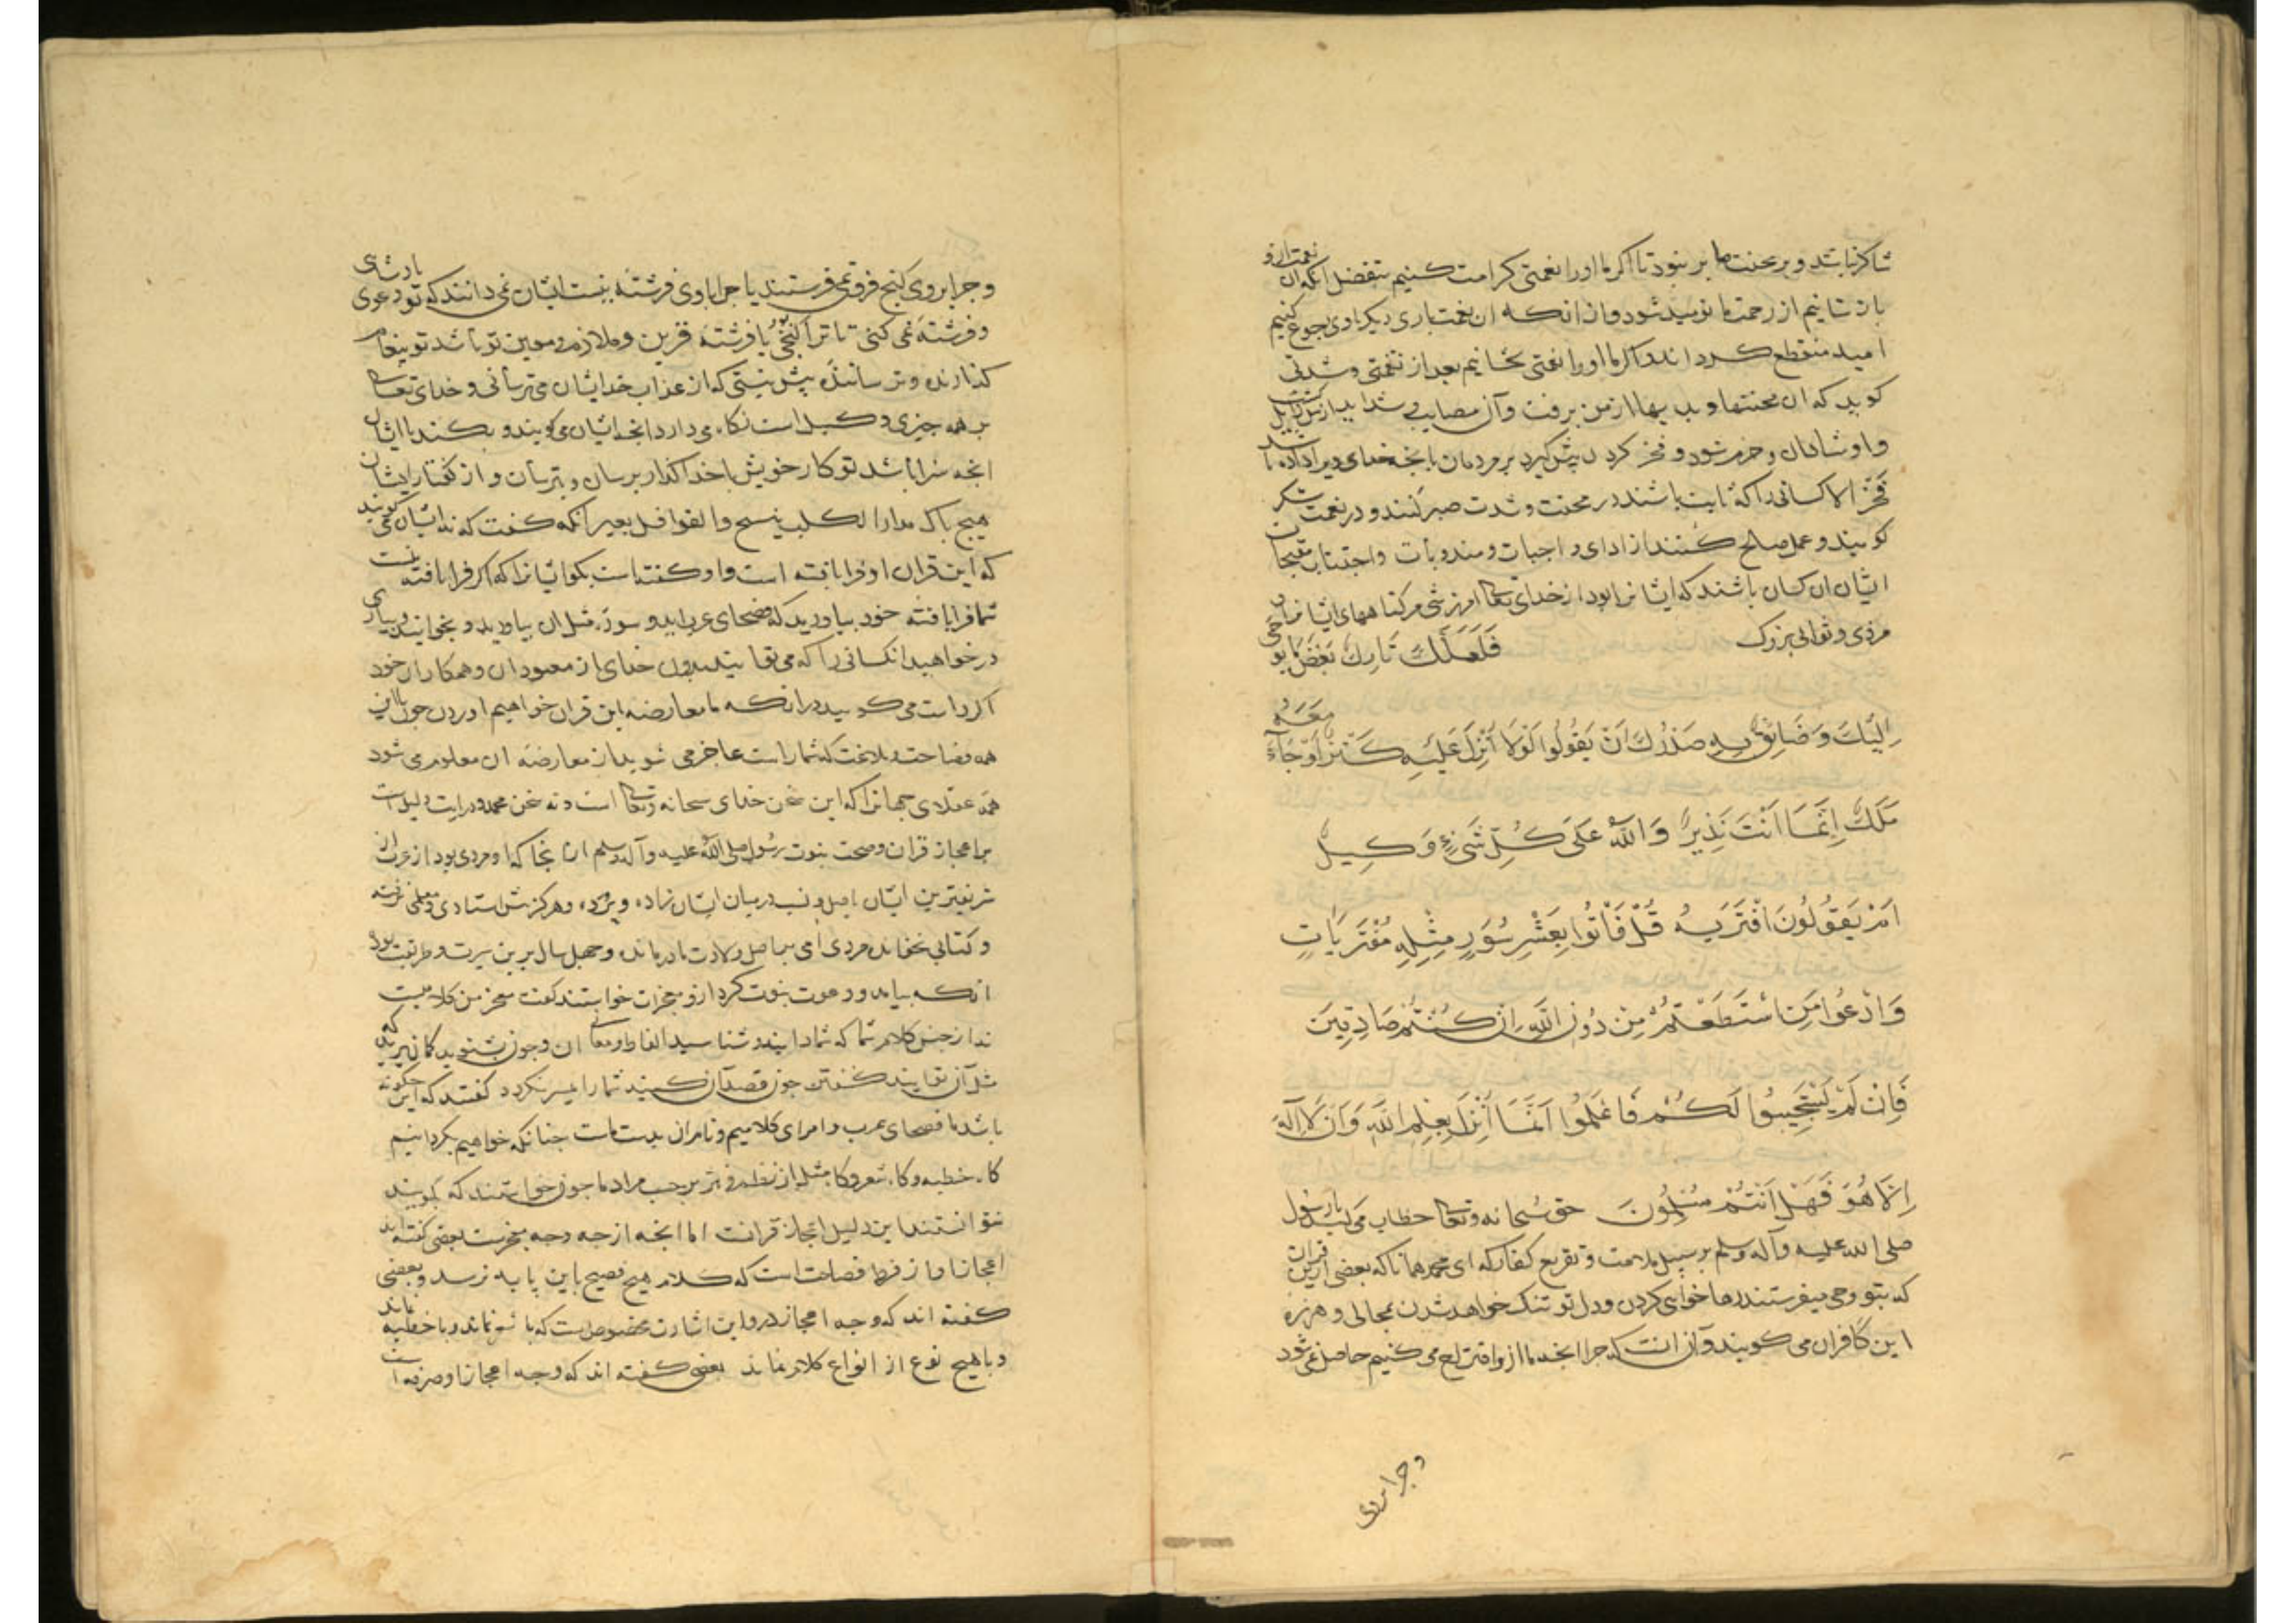 شاکر نباشد و بر محنت ما بر نبود تا اگر ما او را نعمتی کرامت کنیم بتفضل آنکه آن نعمت ازو
باز ستانیم از رحمت ما نومید شود و از آنکه ان نعمت باری دیکر با وی رجوع کنیم
امید منقطع کرداند و اکر ما او را نعمتی بخشانیم بعد از نقمتی و شدتی
کوید که ان محنتها و بدیها از من برفت و آن مصایب و شداید از من زایل کشت
و او شادان و خرم شود و فخر کردن پیش کیرد بر مردمان بانچه خدای ویرا داده باشد
فخر الا کسانی را که ثابت باشند در محنت و شدت صبر کنند و در نعمت شکر
کویند و عمل صالح کنند از ادای واجبات و مندوبات و اجتناب مقبحات
ایشان ان کسان باشند که ایشانرا بود از خدای تعالی امرزشی مر کناههای ایشانرا و
مزدی و ثوابی بزرک فَلَعَلَّكَ تَارِكٌ بَعْضَ مَا يُوحَى
اِلَيْكَ وَضَائِقٌ بِهِ صَدْرُكَ اَنْ يَقُولُوا لَوْلَا اُنْزِلَ عَلَيْهِ كَنْزٌ اَوْ جَاءَ مَعَهُ
مَلَكٌ اِنَّمَا اَنْتَ نَذِيرٌ وَاللّٰهُ عَلَى كُلِّ شَیْءٍ وَكِيلٌ
اَمْ يَقُولُونَ افْتَرَيهُ قُلْ فَأْتُوا بِعَشْرِ سُوَرٍ مِثْلِهِ مُفْتَرَيَاتٍ
وَادْعُوا مَنِ اسْتَطَعْتُمْ مِنْ دُونِ اللّٰهِ اِنْ كُنْتُمْ صَادِقِينَ
فَاِنْ لَمْ يَسْتَجِيبُوا لَكُمْ فَاعْلَمُوا اَنَّمَا اُنْزِلَ بِعِلْمِ اللّٰهِ وَاَنْ لَا اِلَهَ
اِلَّا هُوَ فَهَلْ اَنْتُمْ مُسْلِمُونَ حق سُبحانه وتعالی خطاب می کند با رسول
صلی الله علیه وآله وسلم بر سبیل ملامت و تقریع کفار که ای محمد همانا که بعضی ازین قران
که بتو وحی میفرستند رها خواهی کردن و دل تو تنک خواهد شدن بمجالی و هرزه
این کافران می کویند و آن آنست که چرا آنچه ما ازو اقتراح می کنیم حاصل نمی شود
و چرا بر وی
و چرا بر وی کنج فرو نمی فرستند یا چرا با وی فرشته نیست ایشان نمی دانند که تو دعوی پادشاهی
و فرشته نمی کنی تا ترا کنجی یا فرشته قرین و ملازم و معین تو باشد تو پیغام
کذارنده و ترساننده بیش نیستی که از عذاب خدا ایشان می ترسانی و خدای تعالی
بر همه چیزی وکیل است نکاه می دارد آنچه ایشان می کویند و بکند با ایشان
انچه سزا باشد تو کار خویش با خدا کذار برسان و بترسان و از کفتار ایشان
هیچ باک مدار الکلب ینبح والقوافل بعیر آنکه کفت که نه ایشان می کویند
که این قران او فرا بافته است و او کفته است بکو ایشانرا که اکر فرا بافته نیست
شما فرا بافته خود بیاورید که فصحای عربید و سوره مثل ان بیاورید و بخوانید و یاری
در خواهید انکسانی را که می توانید بدون خدای از معبودان و همکاران خود
اکر راست می کویید در انکه ما معارضه این قران خواهیم اوردن چون با این
همه فصاحت و بلاغت که شما راست عاجز می شوید از معارضه ان معلوم می شود
همه عقلای جهانرا که این سخن خدای سبحانه وتعالی است و نه سخن محمد و درین ایت دلیل است
بر اعجاز قران و صحت نبوت رسول صلی الله علیه وآله وسلم از انجا که او مردی بود از عرب از
شریفترین ایشان باصل و نسب در میان ایشان زاده و پرورده و هرکز پیش استادی و معلمی نرفته
و کتابی نخوانده مردی امی بر اصل ولادت مادر مانده و چهل سال برین سیرت و طریقت بود
انکه بیامد و دعوت نبوت کرد ازو معجزات خواستند کفت معجز من کلامیست
نه از جنس کلام شما که شما دانید و شناسید الفاظ و معانی ان و چون بشنوید کمان برید که
مثل آن توانید کفتن چون قصد آن کنید شما را میسر نکردد کفتند که این چکونه
باشد ما فصحای عرب و امرای کلامیم و زمام ان بدست ماست چنانکه خواهیم بکردانیم
کاه خطبه و کاه شعر و کاه مثل از نظم و نثر بر حسب مراد ما چون خواستند که بکویند
نتوانستند این دلیل اعجاز قرانست اما انچه از چه وجه معجزست بعضی کفته اند
اعجاز او از فرط فصاحت است که کلام هیچ فصیح باین پایه نرسد و بعضی
کفته اند که وجه اعجاز درو این اشارت مخصوص است که با شعر نماند و با خطبه نماند
و با هیچ نوع از انواع کلام نماند بعضی کفته اند که وجه اعجاز او صرفه است